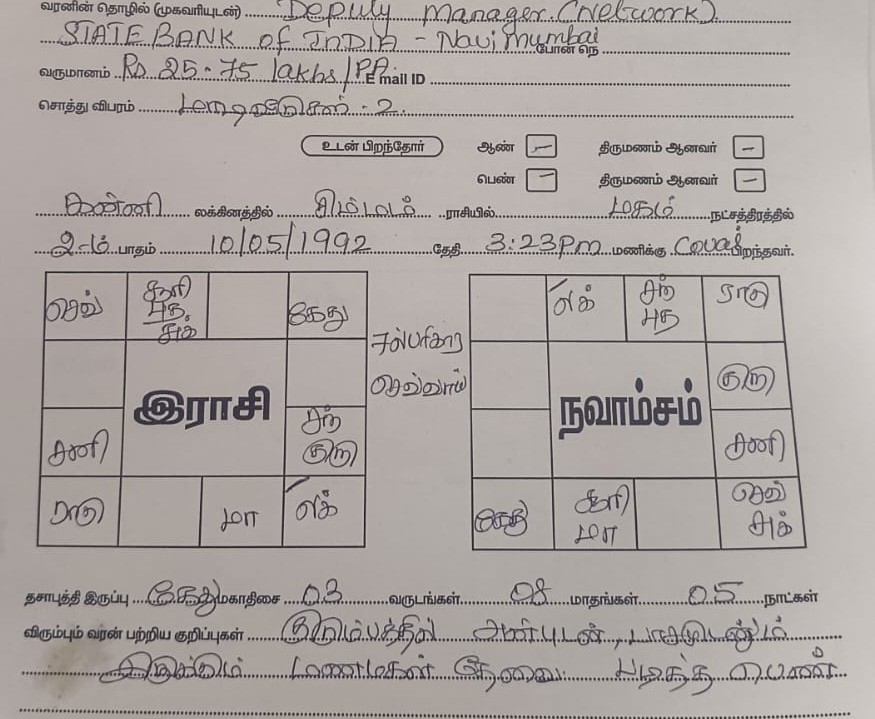 வரனின் தொழில் (முகவரியுடன்) Deputy Manager (Network)
STATE BANK of INDIA - Navi Mumbai போன் நெ
வருமானம் Rs 25.75 lakhs/PA. E mail ID
சொத்து விபரம் மனைவீடுகள் - 2.
உடன் பிறந்தோர் ஆண் – திருமணம் ஆனவர் –
பெண் – திருமணம் ஆனவர் –
கன்னி லக்கினத்தில் சிம்மம் ராசியில் மகம் நட்சத்திரத்தில்
2-ம் பாதம் 10/05/1992 தேதி 3:23pm மணிக்கு Covai பிறந்தவர்.
செவ் சூரி புத சுக் கேது
இராசி
சனி சந் குரு
ராகு மா லக்
பரிகார செவ்வாய்
லக் சந் புத ராகு
குரு
நவாம்சம்
சனி
கேது சூரி மா செவ் சுக்
தசாபுத்தி இருப்பு கேது மகாதிசை 03 வருடங்கள் 08 மாதங்கள் 05 நாட்கள்
விரும்பும் வரன் பற்றிய குறிப்புகள் குடும்பத்தில் அன்புடன், பாசமுடனும்
இருக்கும் மணமகள் தேவை படித்த பெண்